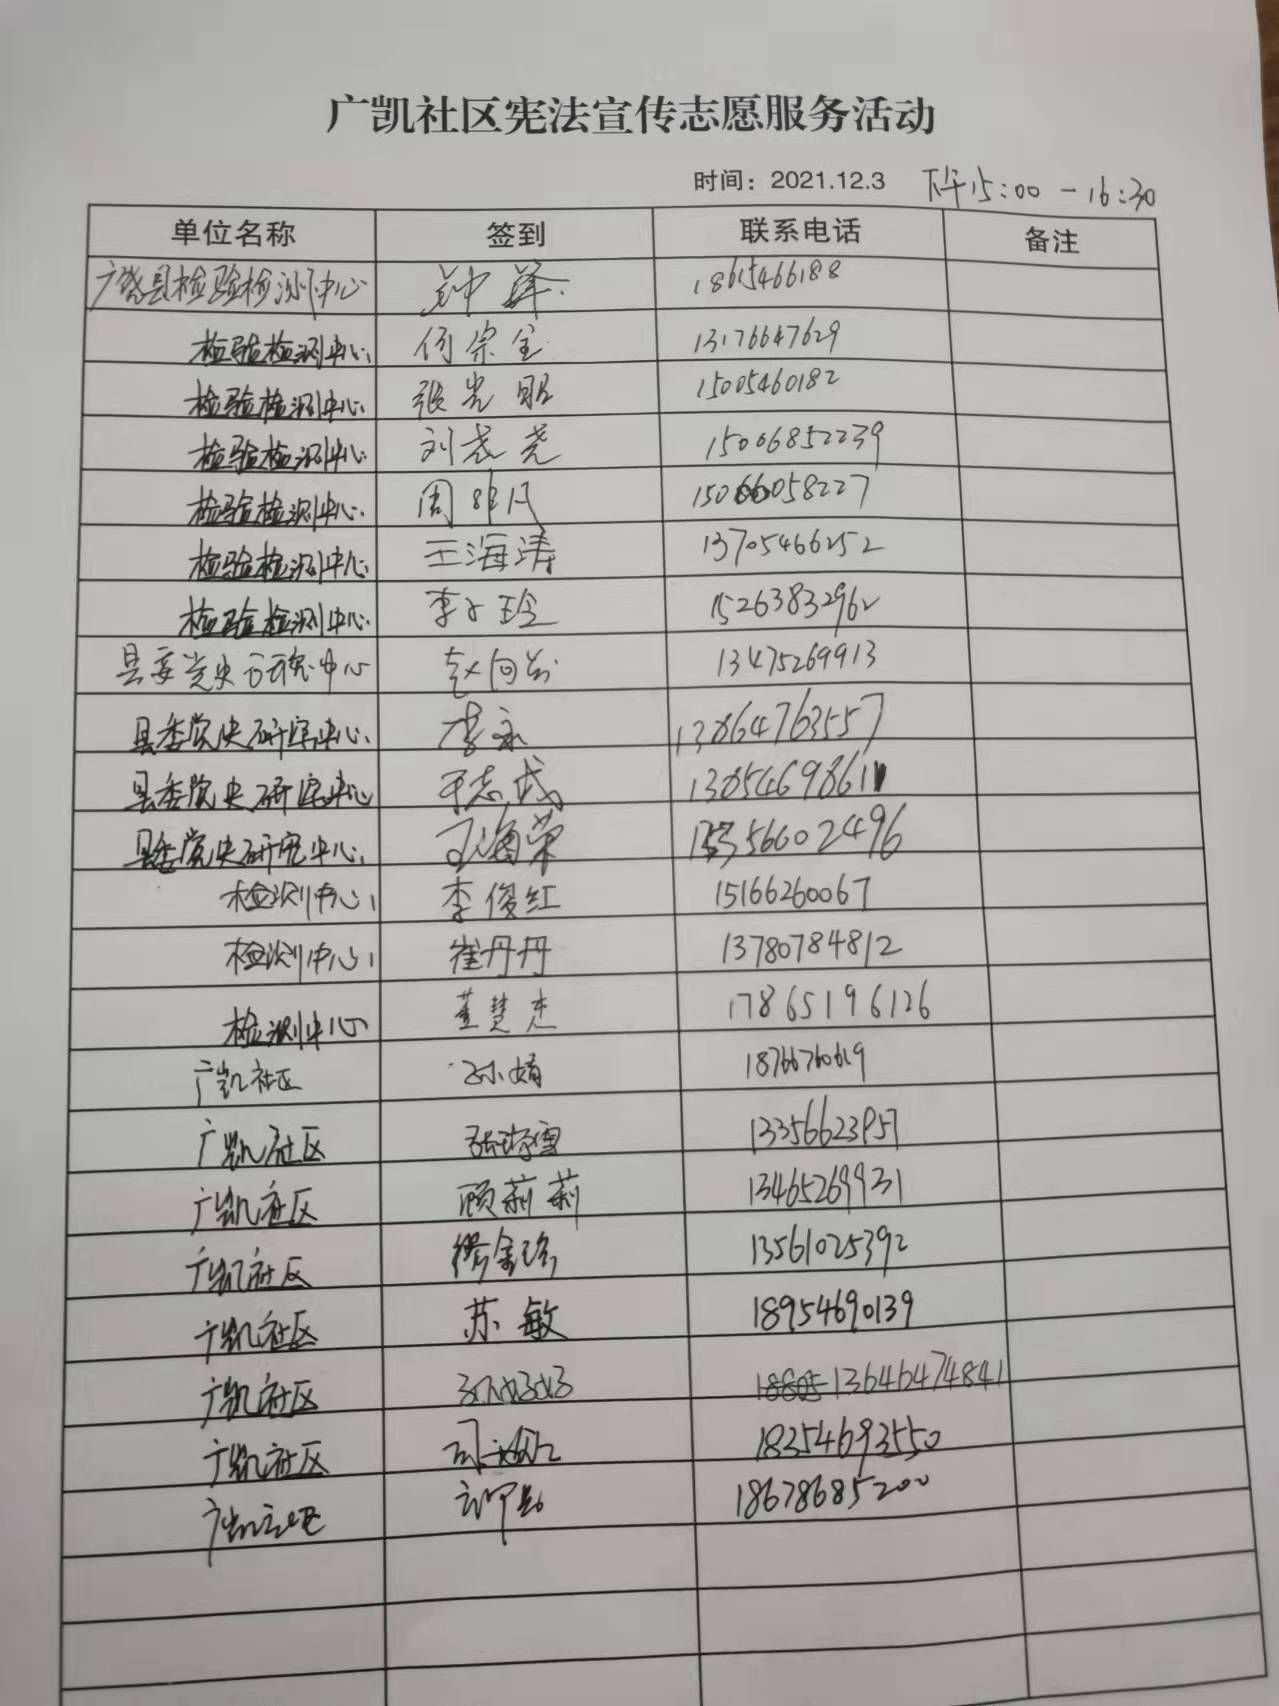 广凯社区宪法宣传志愿服务活动
时间：2021.12.3 下午15:00-16:30
单位名称 签到 联系电话 备注
广饶县检验检测中心 钟 18615466188
检验检测中心 何宗全 13176647629
检验检测中心 张光明 15005460182
检验检测中心 刘尧 15006852239
检验检测中心 周 15066058227
检验检测中心 王海涛 13705466252
检验检测中心 李小玲 15263832962
县委党史研究中心 赵向前 13475269913
县委党史研究中心 李永 13864763557
县委党史研究中心 于志武 13854698611
县委党史研究中心 王海荣 2496
检测中心 李俊红 15166260067
检测中心 崔丹丹 13780784812
检测中心 董慧杰 17865196126
广凯社区 孙婧 18766760619
广凯社区 张琼雪 13356623957
广凯社区 顾莉莉 13465269931
广凯社区 13561025392
广凯社区 苏敏 18954690139
广凯社区 13646474841
广凯社区 司 18354693550
广凯社区 18678685200